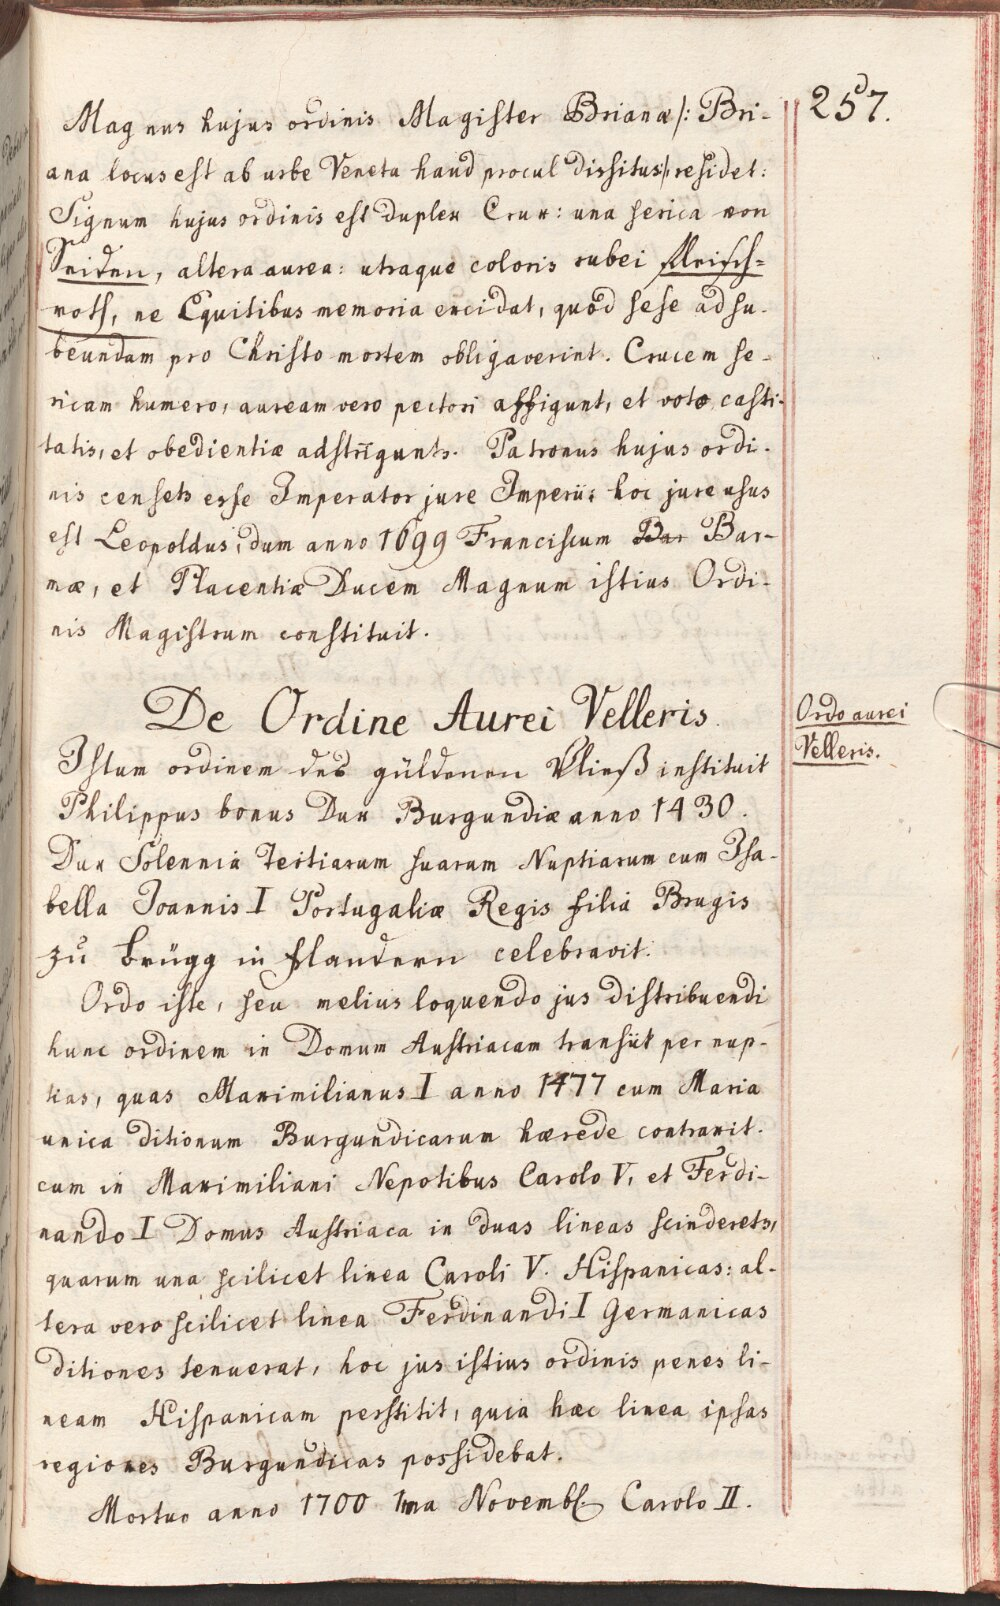 257.
Magnus hujus ordinis Magister Brianæ /: Bri-
ana locus est ab urbe Veneta haud procul dissitus :/ residet:
Signum hujus ordinis est duplex Crux: una serica von
Seiden, altera aurea: utraque coloris rubei fleisch=
roth, ne Equitibus memoria excidat, quòd sese ad su-
beundam pro Christo mortem obligaverint. Crucem se-
ricam humero, auream vero pectori affigunt, et voto casti-
tatis, et obedientiæ adstrīgunts. Patronus hujus ordi-
nis censets esse Imperator jure Imperii: hoc jure usus
est Leopoldus, dum anno 1699 Franciscum Bar Bar-
mæ, et Placentiæ Ducem Magnum istius Ordi-
nis Magistrum constituit.
De Ordine Aurei Velleris.
Ordo aurei
Velleris.
Istum ordinem des güldenen Vließ instituit
Philippus bonus Dux Burgundiæ anno 1430.
Dux Solennia Tertiarum suarum Nuptiarum cum Isa-
bella Joannis I Portugaliæ Regis filia Brugis
zu Brügg in flandern celebravit.
Ordo iste, seu melius loquendo jus distribuendi
hunc ordinem in Domum Austriacam transiit per nup-
tias, quas Maximilianus I anno 1477 cum Maria
unica ditionum Burgundicarum hærede contraxit.
cum in Maximiliani Nepotibus Carolo V, et Ferdi-
nando I Domus Austriaca in duas lineas scinderets,
quarum una scilicet linea Caroli V. Hispanicas: al-
tera vero scilicet linea Ferdinandi I Germanicas
ditiones tenuerat, hoc jus istius ordinis penes li-
neam Hispanicam perstitit, quia hæc linea ipsas
regiones Burgundicas possidebat.
Mortuo anno 1700 1ma Novemb. Carolo II.